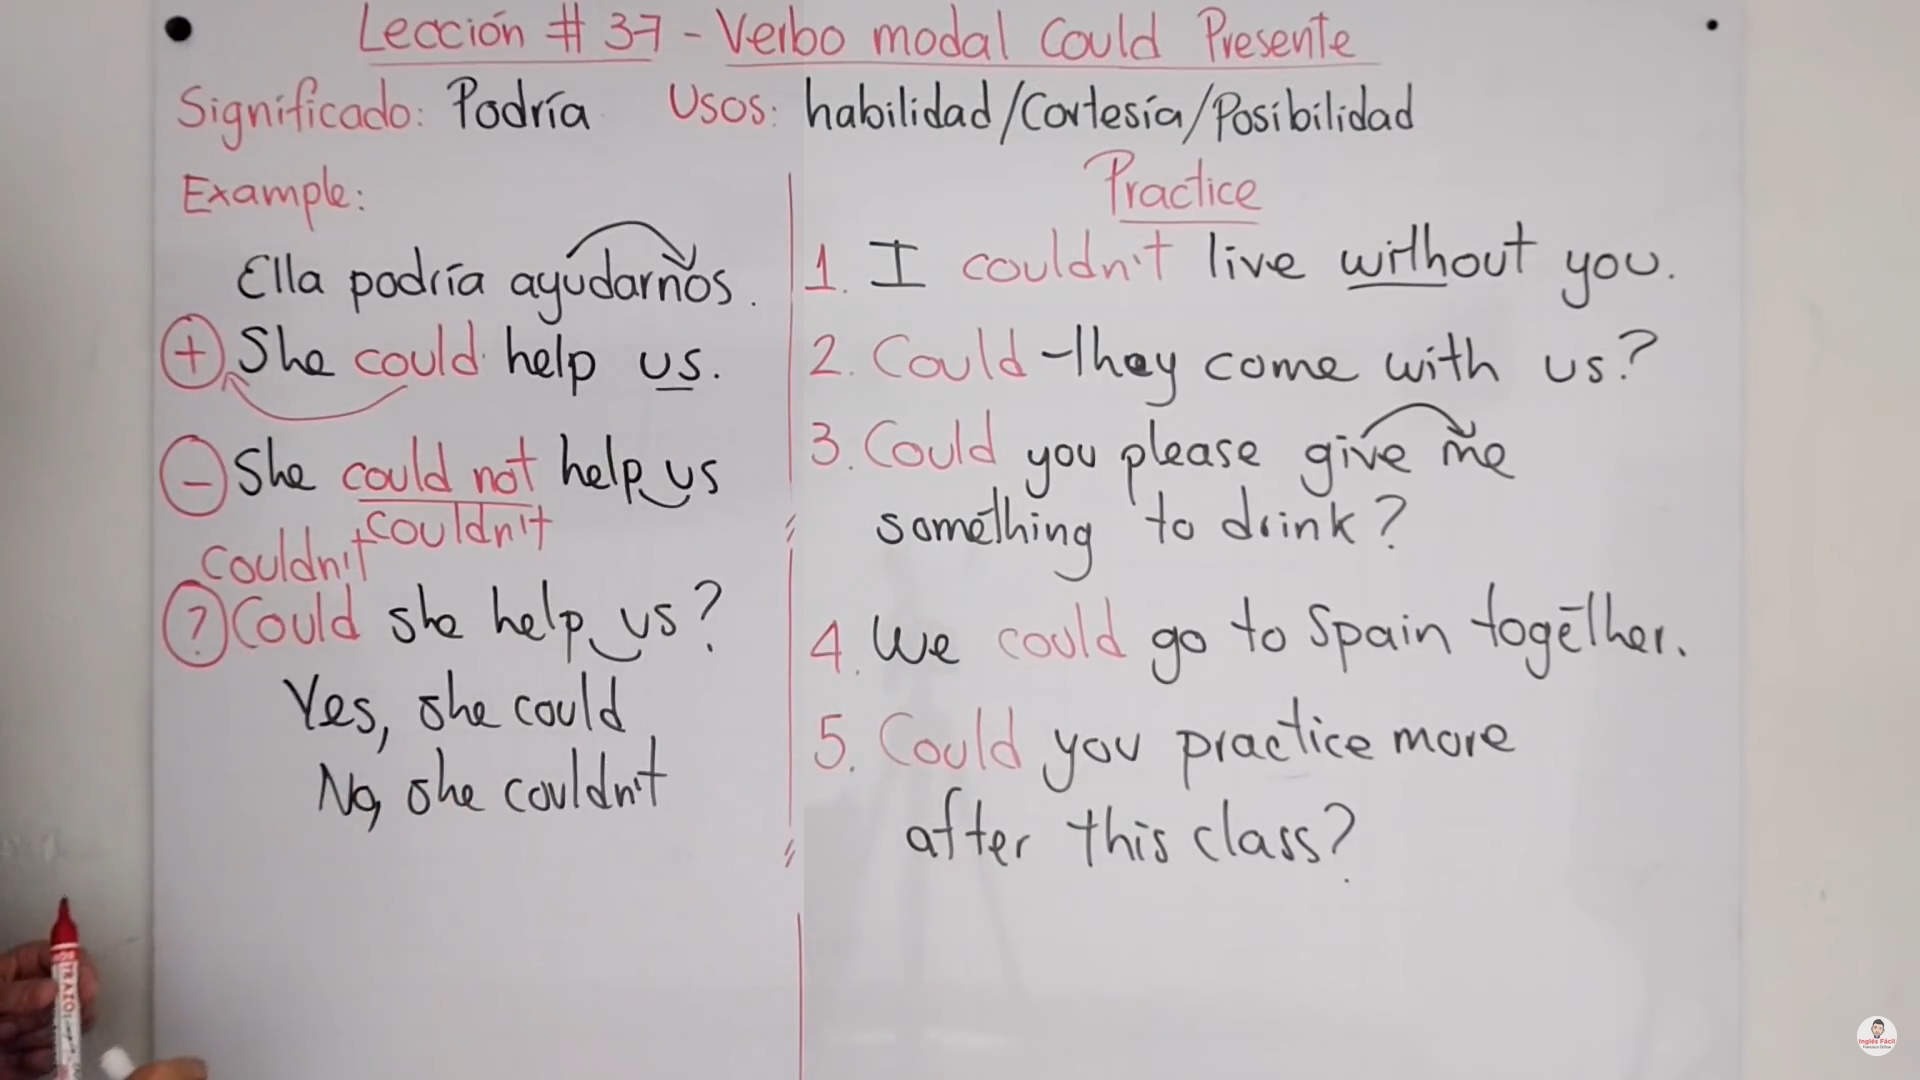 Lección # 37 - Verbo modal Could Presente
Significado: Podría Usos: habilidad/Cortesía/Posibilidad
Example:
Ella podría ayudarnos.
+ She could help us.
- She could not help us
couldn't
Couldn't
? Could she help us?
Yes, she could
No, she couldn't
Practice
1. I couldn't live without you.
2. Could they come with us?
3. Could you please give me
something to drink?
4. We could go to Spain together.
5. Could you practice more
after this class?
TRAZO
Inglés Fácil